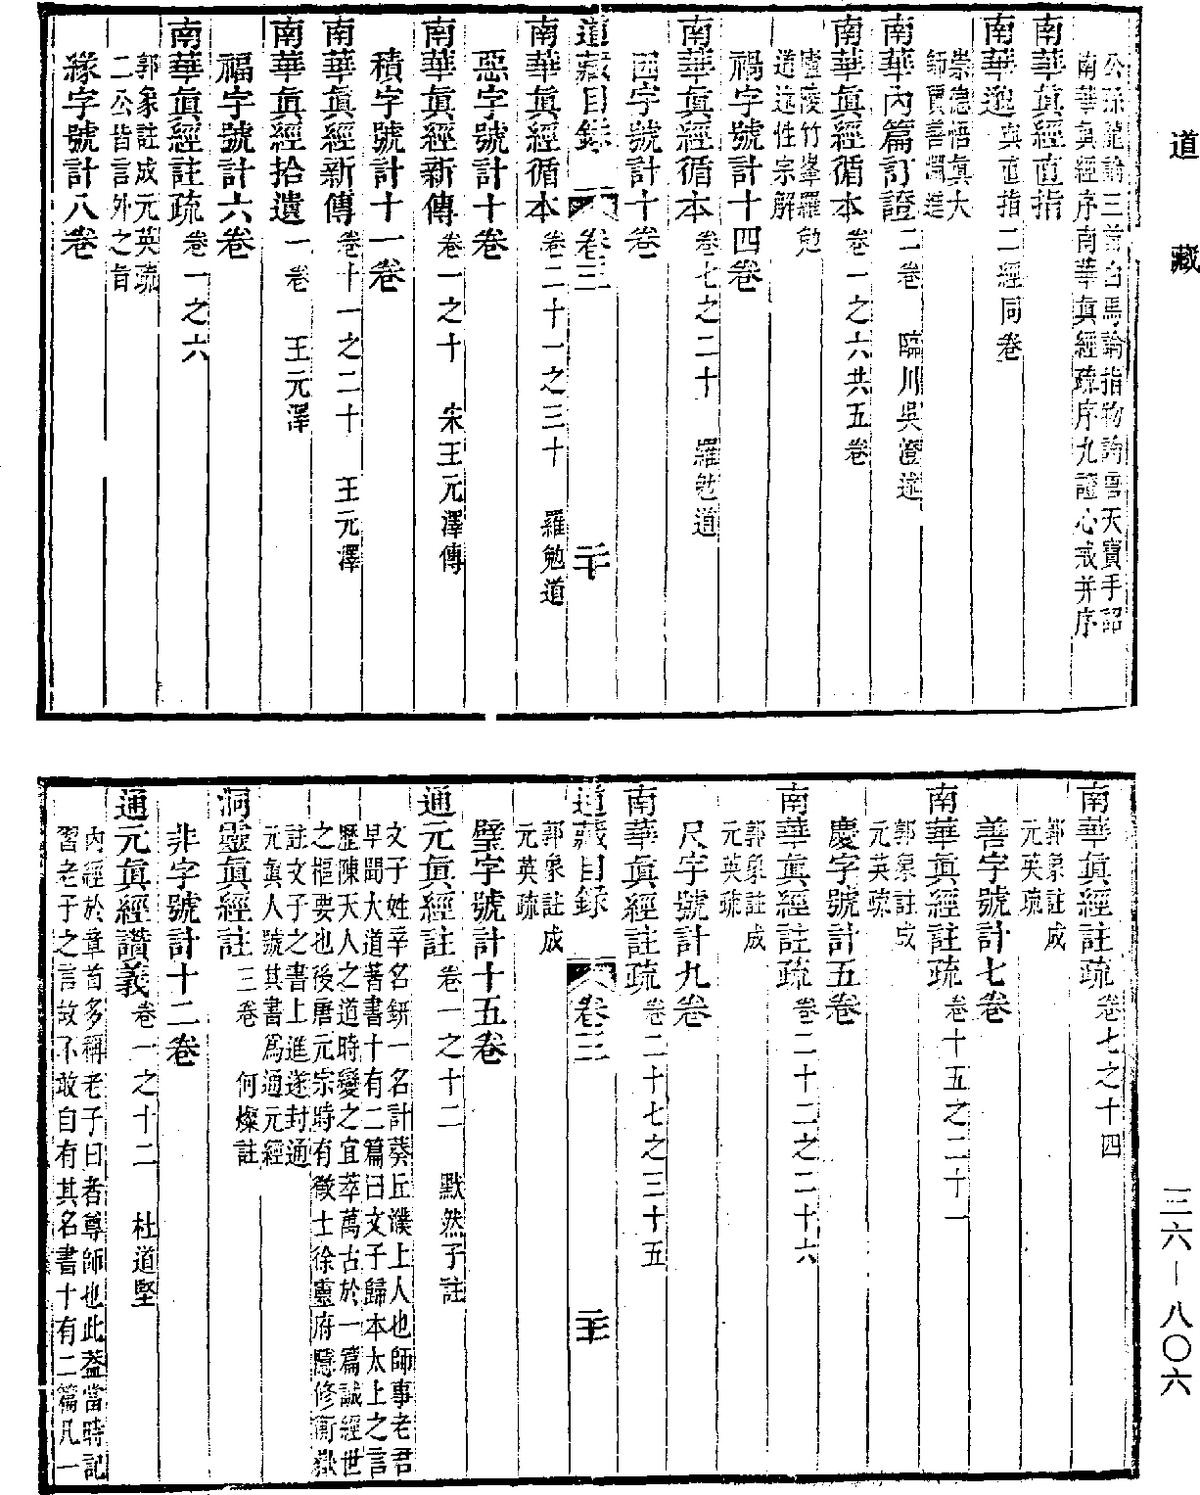 道藏
公孫龍論三首白馬論指物論唐天寶手詔
南華眞經序南華眞經疏序九證心戒并序
南華眞經直指
南華邈與直指二經同卷
崇德悟眞大
師賈善淵進
南華內篇訂證二卷 臨川吳澄述
南華眞經循本卷一之六共五卷
廬陵竹峯羅勉
道述性宗解
禍字號計十四卷
南華眞經循本卷七之二十 羅勉道
因字號計十卷
道藏目錄 卷三 二十
南華眞經循本卷二十一之三十 羅勉道
惡字號計十卷
南華眞經新傳卷一之十 宋王元澤傳
積字號計十一卷
南華眞經新傳卷十一之二十 王元澤
南華眞經拾遺一卷 王元澤
福字號計六卷
南華眞經註疏卷一之六
郭象註成元英疏
二公皆言外之旨
緣字號計八卷
南華眞經註疏卷七之十四
郭象註成
元英疏
善字號計七卷
南華眞經註疏卷十五之二十一
郭象註成
元英疏
慶字號計五卷
南華眞經註疏卷二十二之二十六
郭象註成
元英疏
尺字號計九卷
南華眞經註疏卷二十七之三十五
道藏目錄 卷三 二十一
郭象註成
元英疏
璧字號計十五卷
通元眞經註卷一之十二 默然子註
文子姓辛名鈃一名計葵丘濮上人也師事老君
早聞大道著書十有二篇曰文子歸本太上之言
歷陳天人之道時變之宜萃萬古於一篇誠經世
之樞要也後唐元宗時有徵士徐靈府隱修衡嶽
註文子之書上進遂封通
元眞人號其書爲通元經
洞靈眞經註三卷 何燦註
非字號計十二卷
通元眞經讚義卷一之十二 杜道堅
內經於章首多稱老子曰者尊師也此蓋當時記
習老子之言故不敢自有其名書十有二篇凡一
三六—八〇六